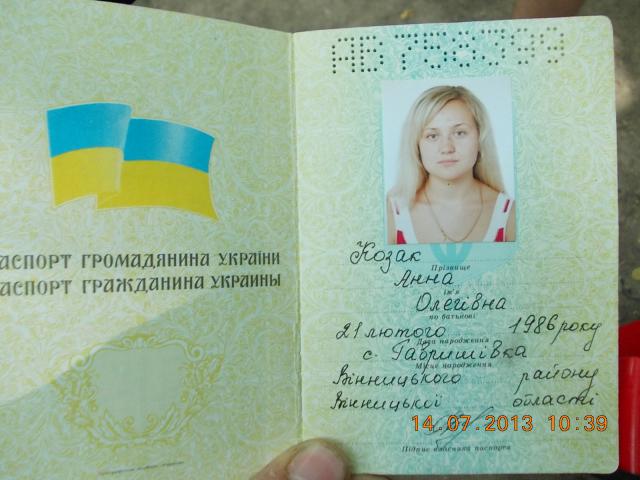 АВ 756399
АСПОРТ ГРОМАДЯНИНА УКРАЇНИ
АСПОРТ ГРАЖДАНИНА УКРАИНЫ
Козак
Прізвище
Анна
ім'я
Олегівна
по батькові
21 лютого 1986 року
Дата народження
с. Гавришівка
Місце народження
Вінницького району
Вінницької області
14.07.2013 10:39
Підпис власника паспорта